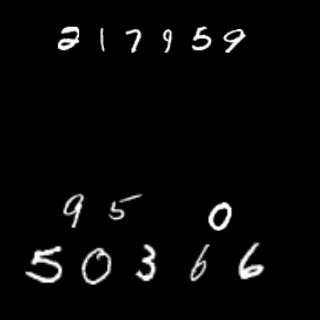 217959
95 0
50366